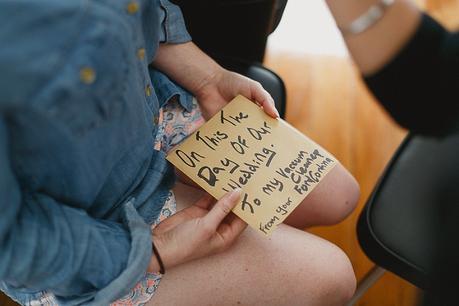 On This The
Day Of Our
Wedding.
To my Vacuum
Cleaner
From your